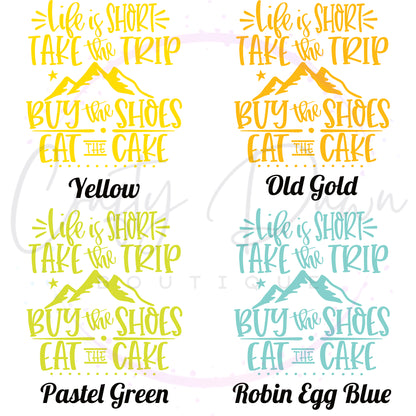 Life is SHORT
TAKE the TRIP
BUY the SHOES
EAT THE CAKE
Yellow
Life is SHORT
TAKE the TRIP
BUY the SHOES
EAT THE CAKE
Old Gold
Life is SHORT
TAKE the TRIP
BUY the SHOES
EAT THE CAKE
Pastel Green
Life is SHORT
TAKE the TRIP
BUY the SHOES
EAT THE CAKE
Robin Egg Blue
Crafty Dawn
BOUTIQUE